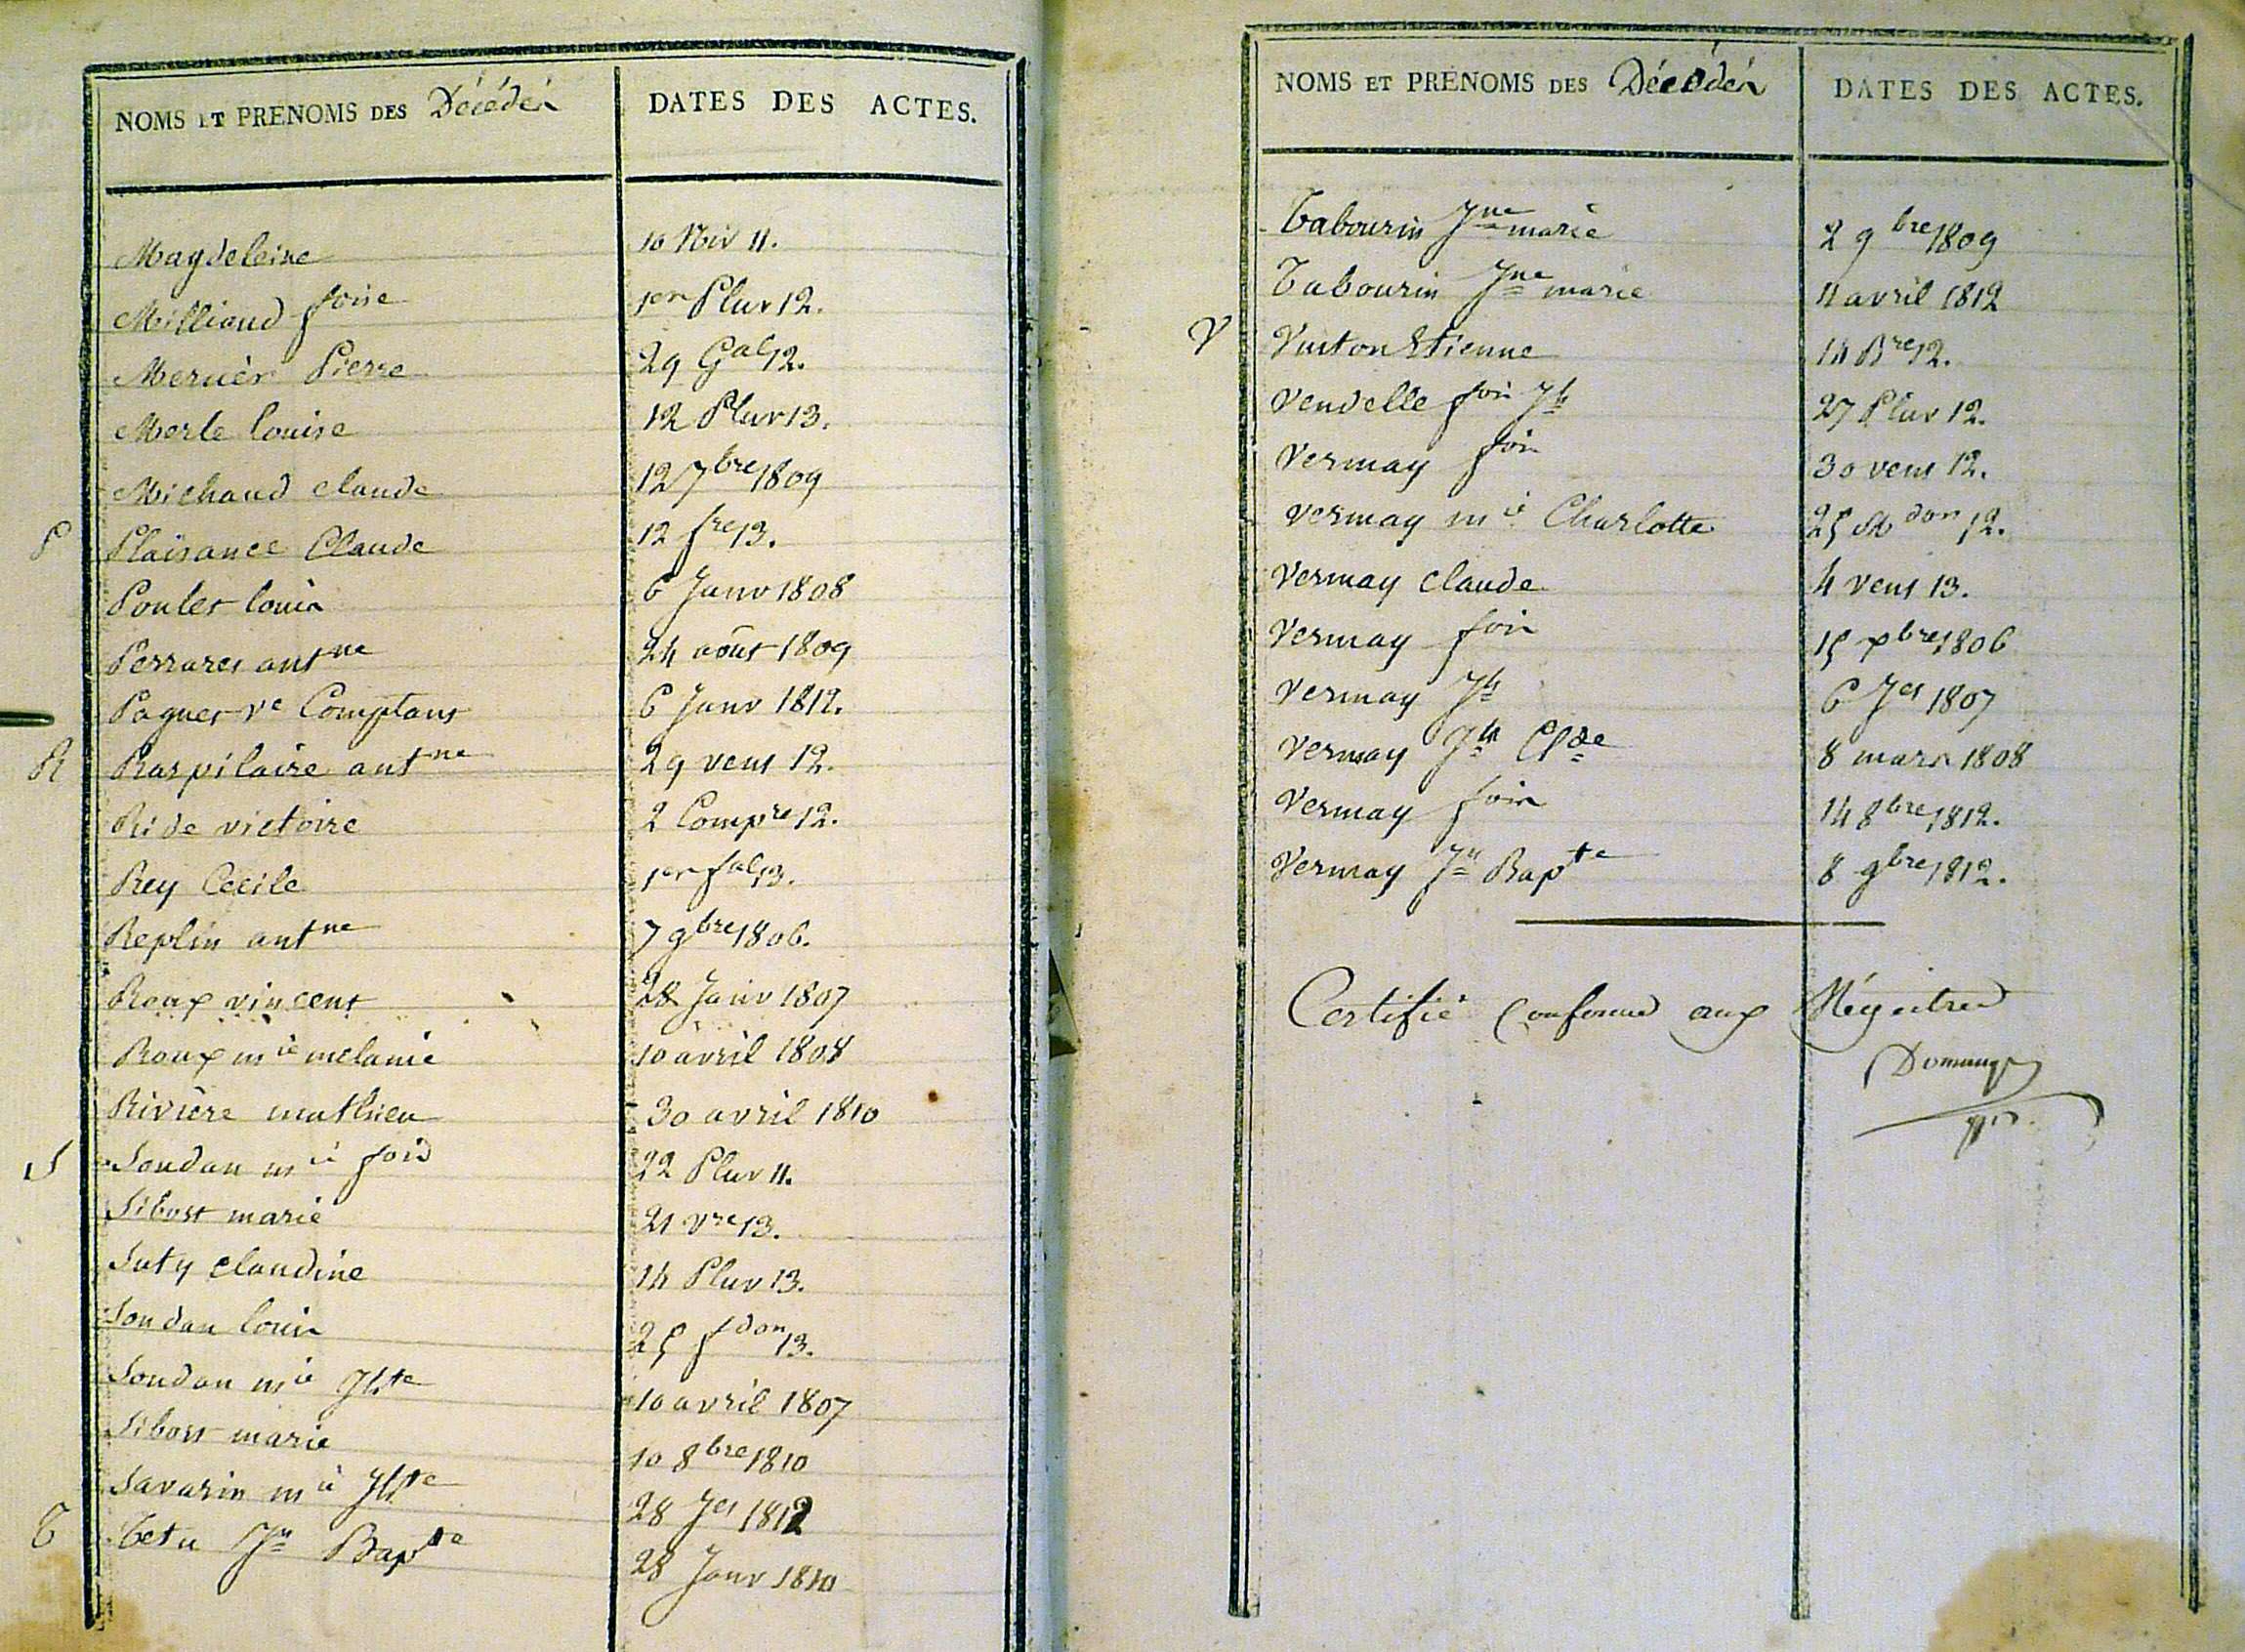 NOMS ET PRENOMS DES Décédés DATES DES ACTES.
Magdeleine 10 Niv 11.
Milliaud foise 1er Pluv 12.
Mercier Pierre 29 Gal 12.
Merle Louise 12 Pluv 13.
Michaud Claude 12 7bre 1809
P Plaisance Claude 12 fre 13.
Poulet Louis 6 Janv 1808
Perraret antne 24 août 1809
Paquet ve Comptant 6 Janv 1812.
R Raspilaire antne 29 vent 12.
Ride victoire 2 Compre 12.
Rey Cecile 1er fal 13.
Replin antne 7 9bre 1806.
Roux vincent 28 Janv 1807
Roux mie melanie 10 avril 1808
Rivière mathieu 30 avril 1810
S Soudan mie fois 22 Pluv 11.
Sibost marie 21 vre 13.
Suty claudine 14 Pluv 13.
Soudan Louis 25 fdon 13.
Soudan mie Jhte 10 avril 1807
Sibost marie 10 8bre 1810
Savarin mie Jhte 28 Jet 1812
T Tetu Jn Bapte 28 Janv 1810
NOMS ET PRENOMS DES Décédés DATES DES ACTES.
Tabourin Jne marie 2 9bre 1809
Tabourin Jne marie 11 avril 1812
V Vuiton Etienne 14 Bre 12.
Vendelle fois Jh 27 Pluv 12.
Vermay fois 30 vent 12.
Vermay mie Charlotte 25 don 12.
Vermay Claude 4 vent 13.
Vermay fois 15 xbre 1806
Vermay Jh 6 Jet 1807
Vermay Jh Clde 8 mars 1808
Vermay fois 14 8bre 1812.
Vermay Jn Bapte 8 9bre 1812.
Certifié Conforme aux Régistres